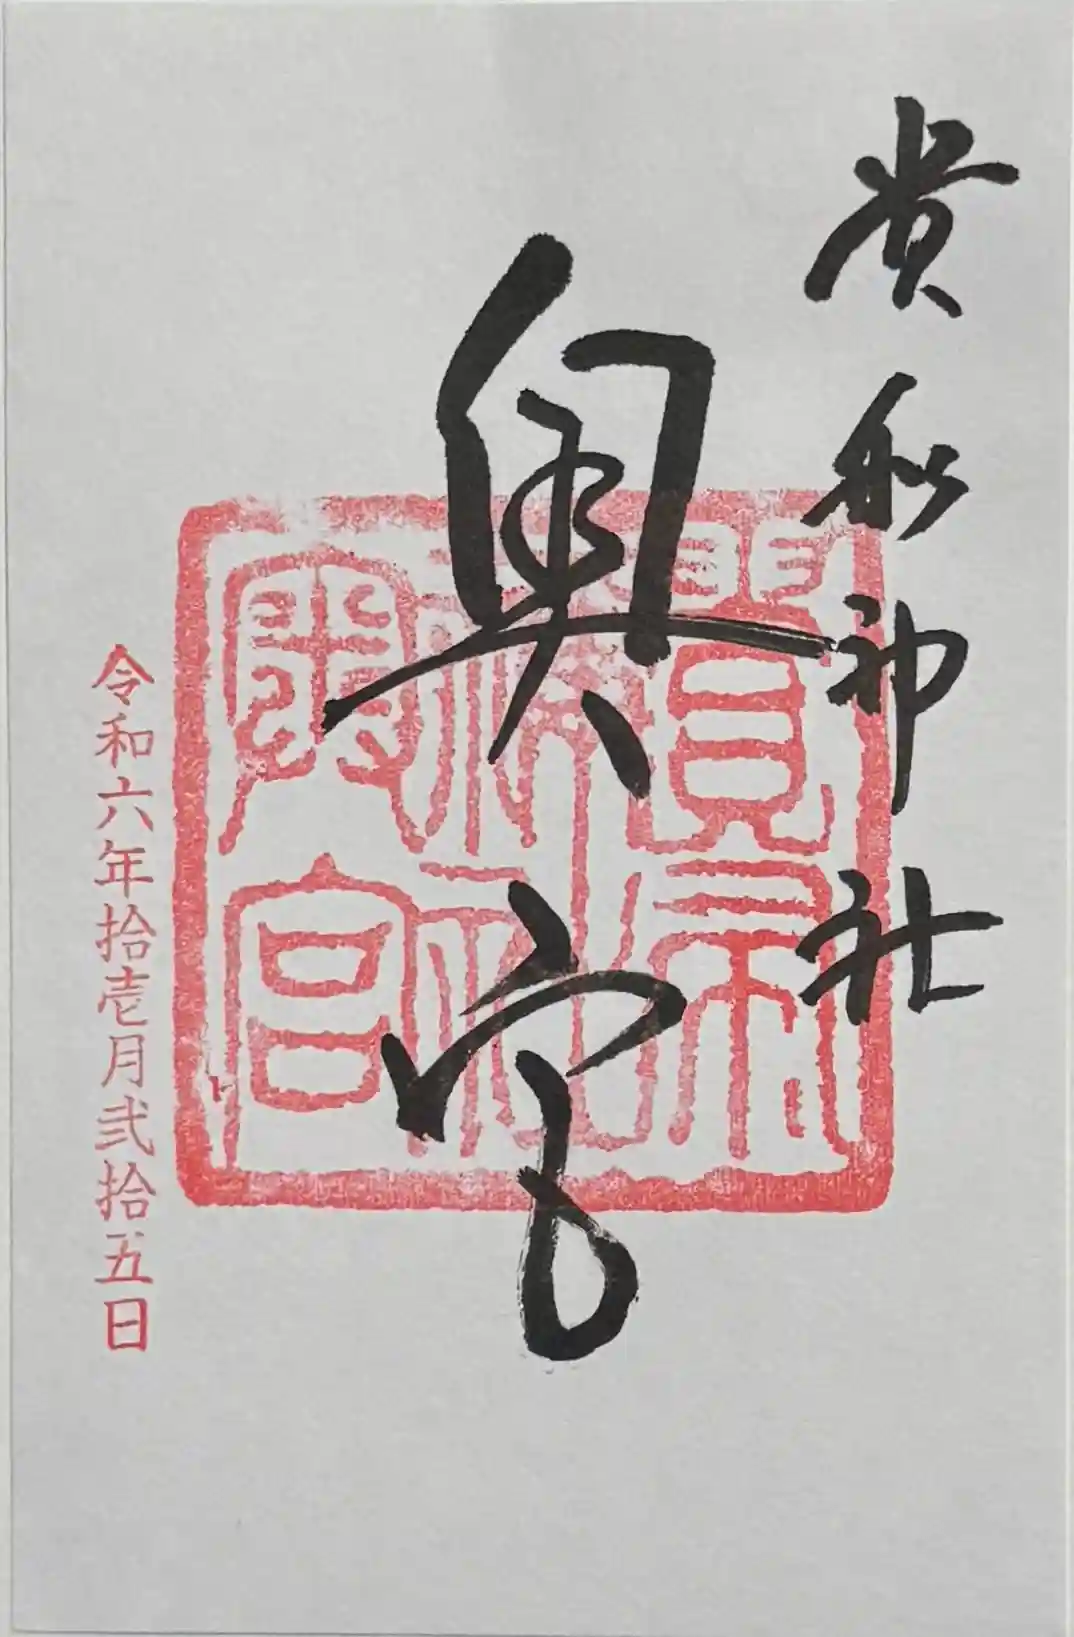 貴船神社
奥宮
令和六年拾壱月弐拾五日